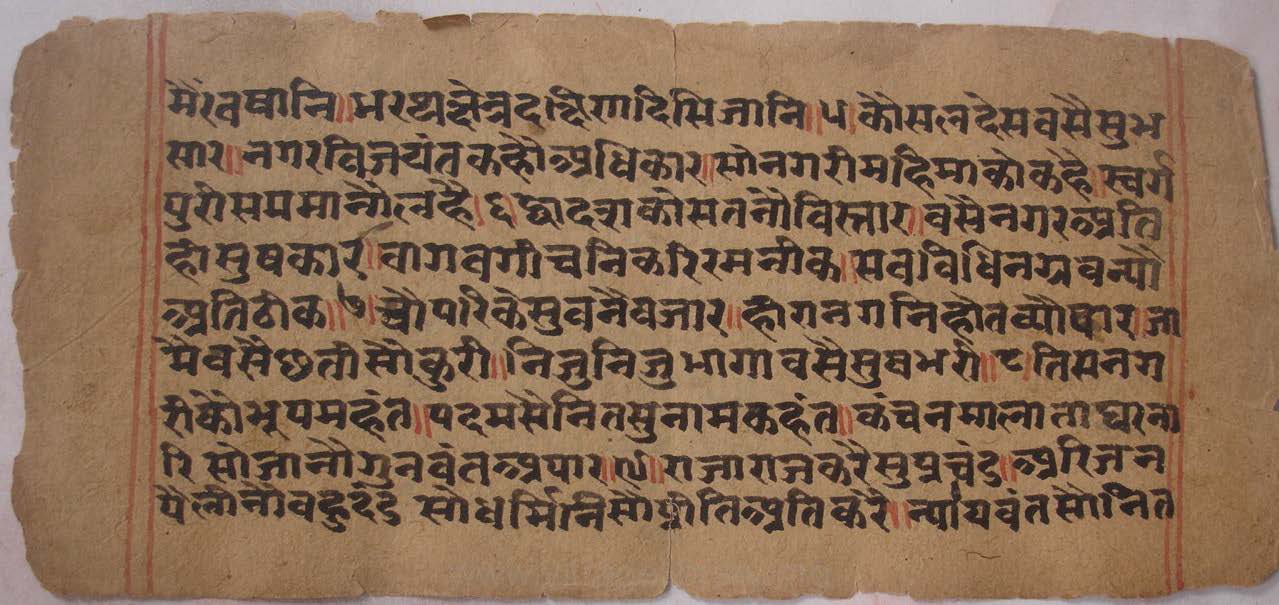 मैरवषानि॥भरथक्षेत्रदक्षिणदिसिजानि॥५।कौसलदेसवसैसुभ
सार॥नगरविजयंतकह्यौअधिकार॥सोनगरीमहिमाकोकहै॥स्वर्ग
पुरीसममानौलहै।६द्वादशकोसतनौविस्तार॥वसैनगरअति
हीसुषकार॥वागवगीचनिकरिरमनीक॥सवविधिनग्रवन्यौ
अतिठीक॥७।चौपरिकेसुवनैवजार॥हीरानगनिहौतव्यौपार।जा
मैवसैछतीसौकुरी॥निजुनिजुभागावसैसुषभरी॥८।तिसनग
रीकौभूपमहंत॥पदमसैनितसुनामकहंत॥कंचनमालाताघरना
रिसोजानौगुनवंतअपार॥९॥राजाराजकरैसुप्रचंड॥अरिजन
पैलीनौवहुदंडसोधर्मिनिसौप्रीतिअतिकरै॥न्यायवंतसौनित